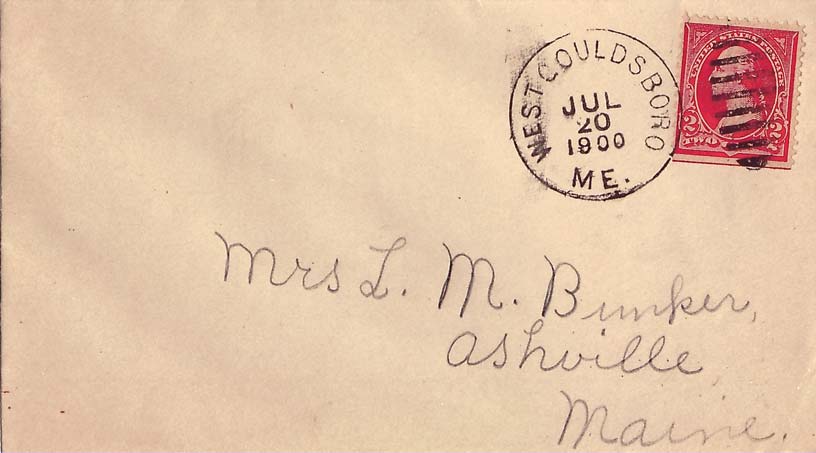 WEST GOULDSBORO
JUL
20
1900
ME.
UNITED STATES POSTAGE
2 2
TWO
Mrs L. M. Bunker,
Ashville
Maine.